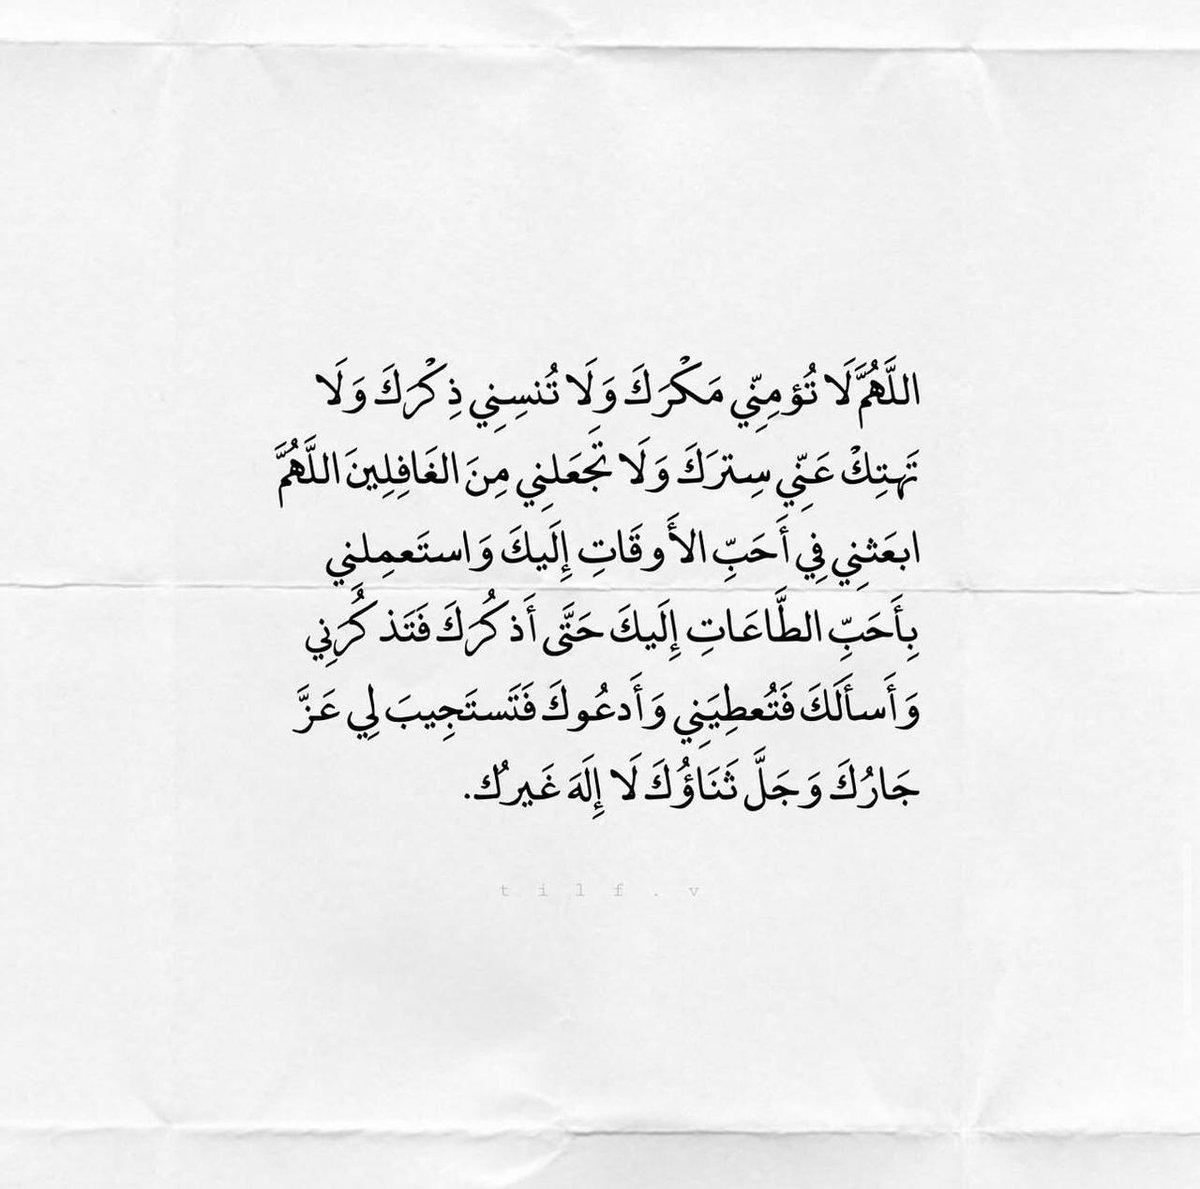 اللَّهُمَّ لَا تُؤمِنِّي مَكْرَكَ وَلَا تُنسِنِي ذِكْرَكَ وَلَا
تَهتِكْ عَنِّي سِترَكَ وَلَا تَجعَلنِي مِنَ الغَافِلِينَ اللَّهُمَّ
ابعَثنِي فِي أَحَبِّ الأَوقَاتِ إِلَيكَ وَاستَعمِلنِي
بِأَحَبِّ الطَّاعَاتِ إِلَيكَ حَتَّى أَذكُرَكَ فَتَذكُرَنِي
وَأَسأَلَكَ فَتُعطِيَنِي وَأَدعُوكَ فَتَستَجِيبَ لِي عَزَّ
جَارُكَ وَجَلَّ ثَنَاؤُكَ لَا إِلَهَ غَيرُك.
tilf.v